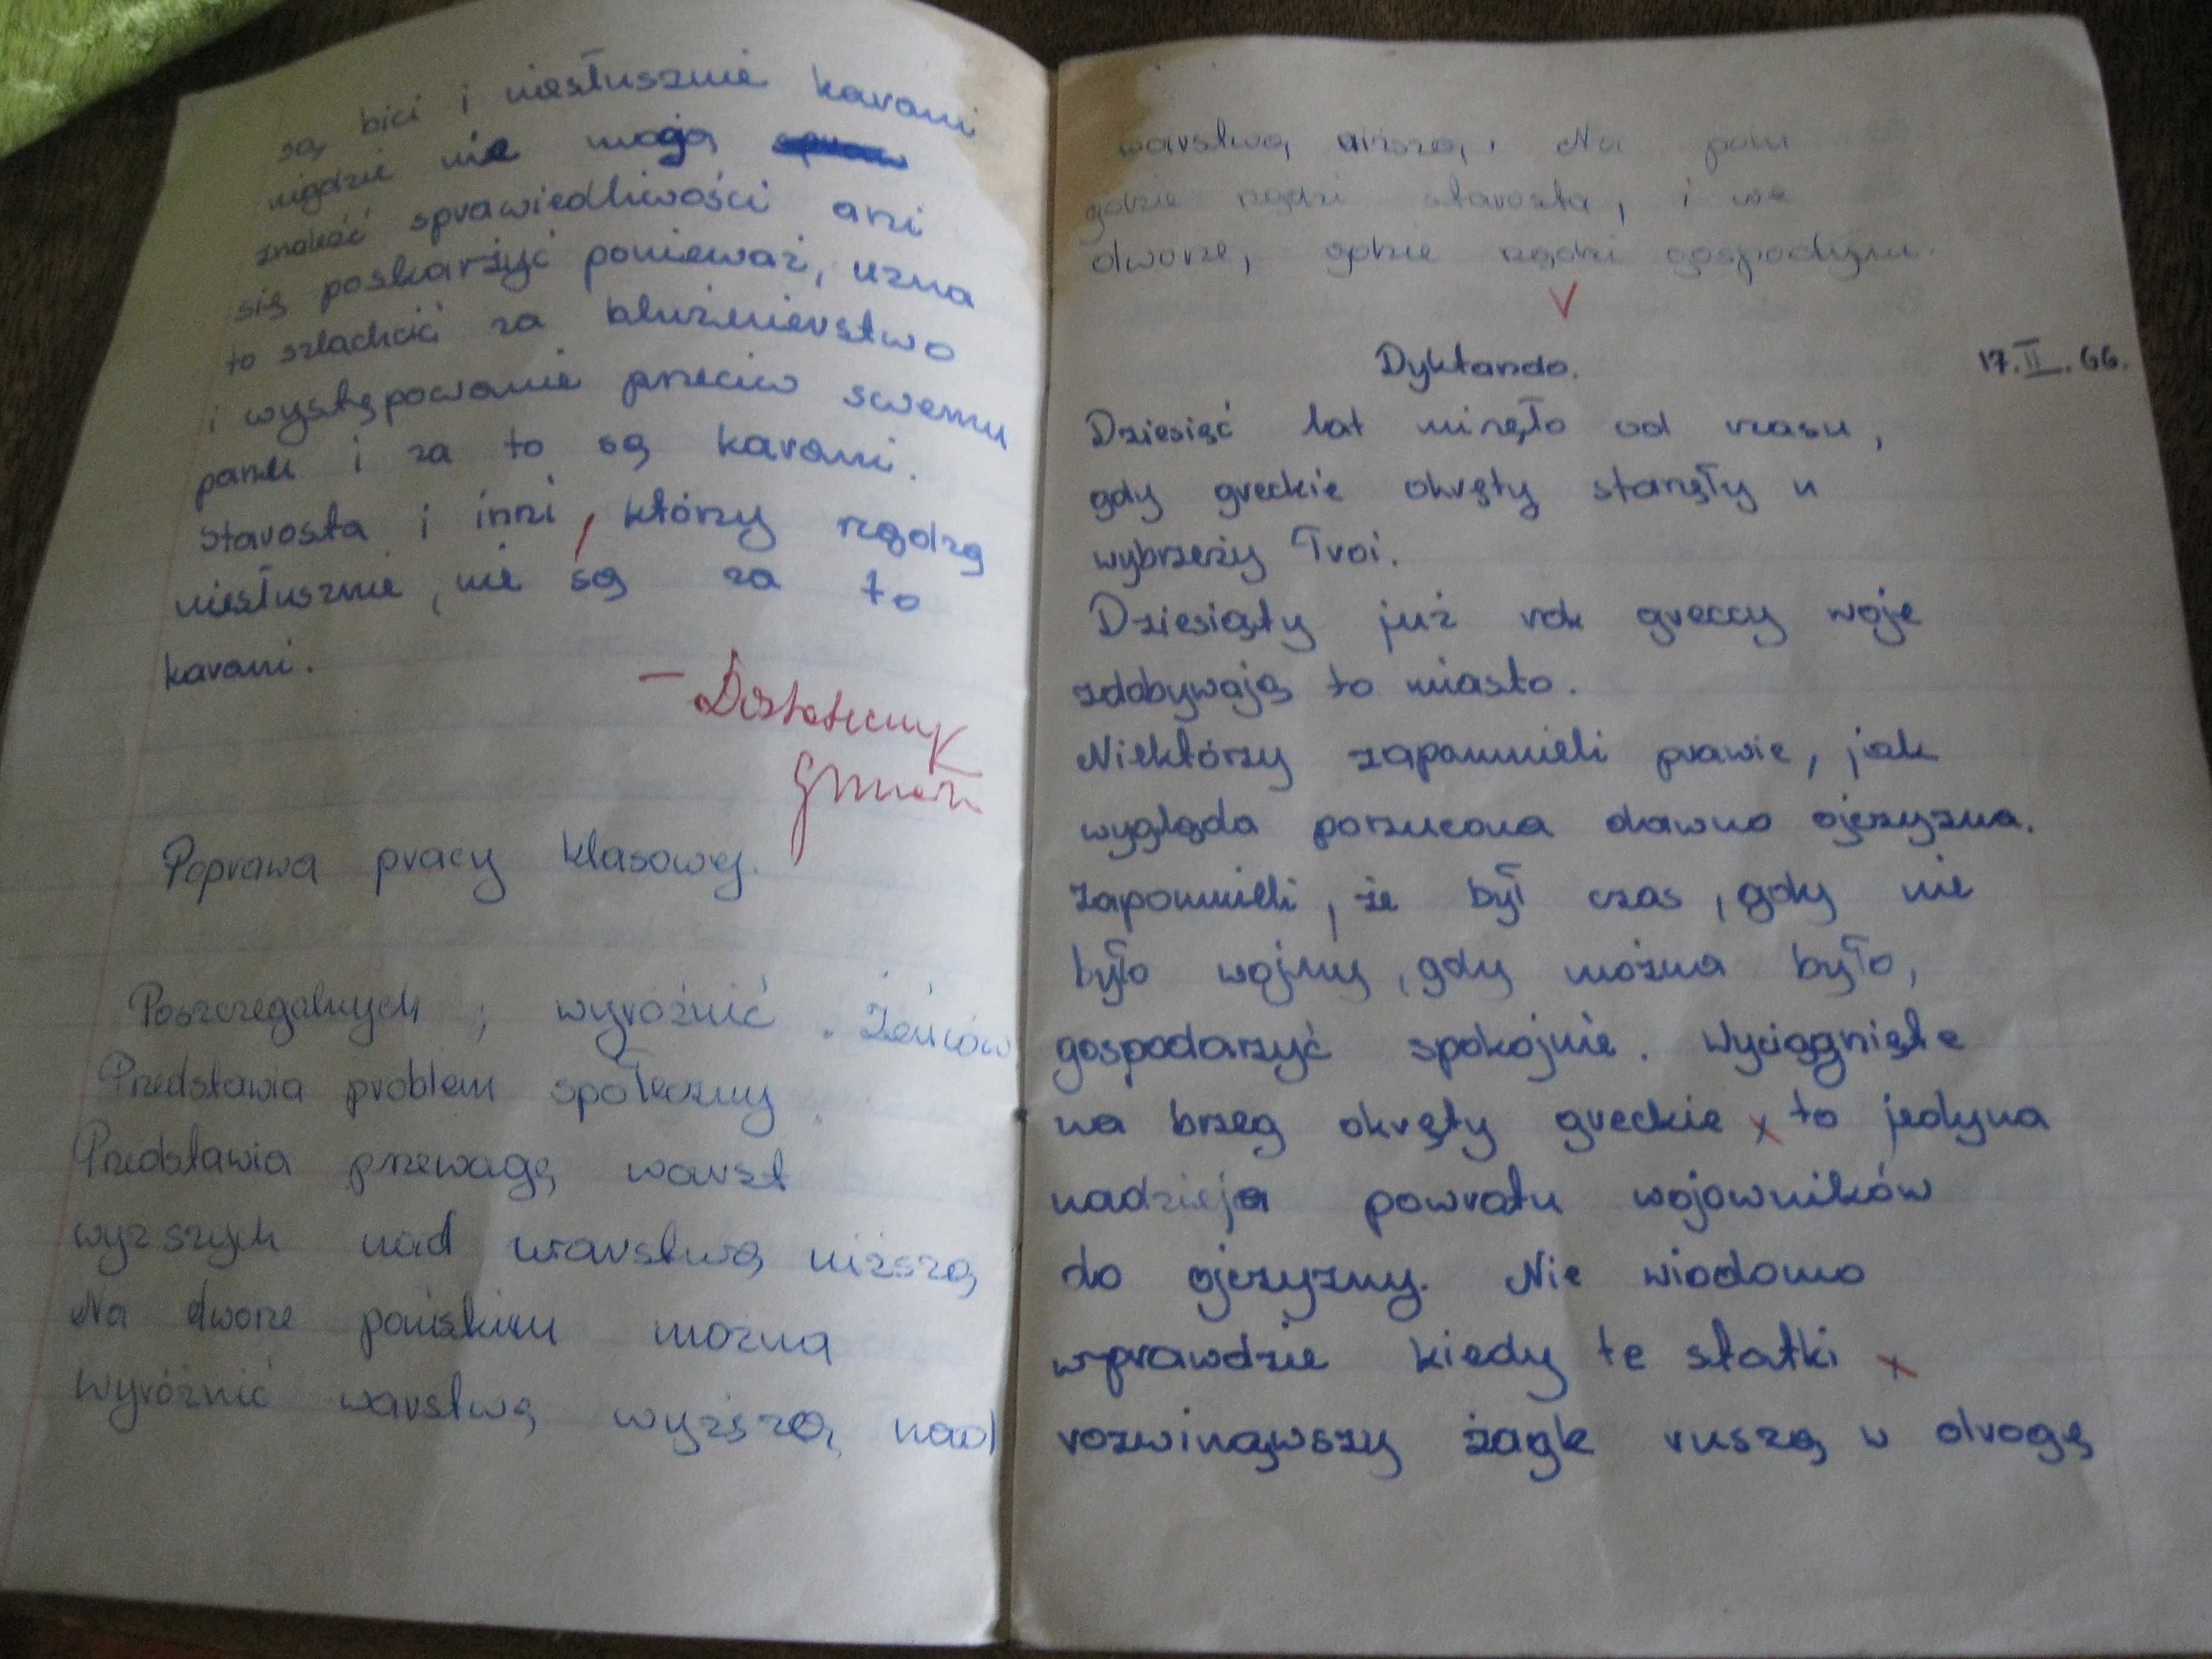 są bici i niesłusznie karani
nigdzie nie mogą
znaleźć sprawiedliwości ani
się poskarżyć ponieważ, uzna
to szlachcić za bluźnierstwo
i występowanie przeciw swemu
panu i za to są karani.
Starosta i inni, którzy rządzą
niesłusznie, nie są za to
karani.
- Dostateczny
Poprawa pracy klasowej.
Poszczególnych ; wyróżnić . Żeńców
Przedstawia problem społeczny.
Przedstawia przewagę warst
wyższych nad warstwą niższą
Na dworze pańskim można
Wyróżnić warstwę wyższą nad
warstwą niższą. Na polu
gdzie rządzi starosta, i we
dworze, gdzie rządzi gospodyni.
Dyktando. 17.II.66.
Dziesięć lat minęło od czasu,
gdy greckie okręty stanęły u
wybrzeży Troi.
Dziesiąty już rok greccy woje
zdobywają to miasto.
Niektórzy zapomnieli prawie, jak
wygląda porzucona dawno ojczyzna.
Zapomnieli, że był czas, gdy nie
było wojny, gdy można było,
gospodarzyć spokojnie. Wyciągnięte
na brzeg okręty greckie x to jedyna
nadzieja powrotu wojowników
do ojczyzny. Nie wiadomo
wprawdzie kiedy te statki x
rozwinąwszy żagle ruszą w drogę